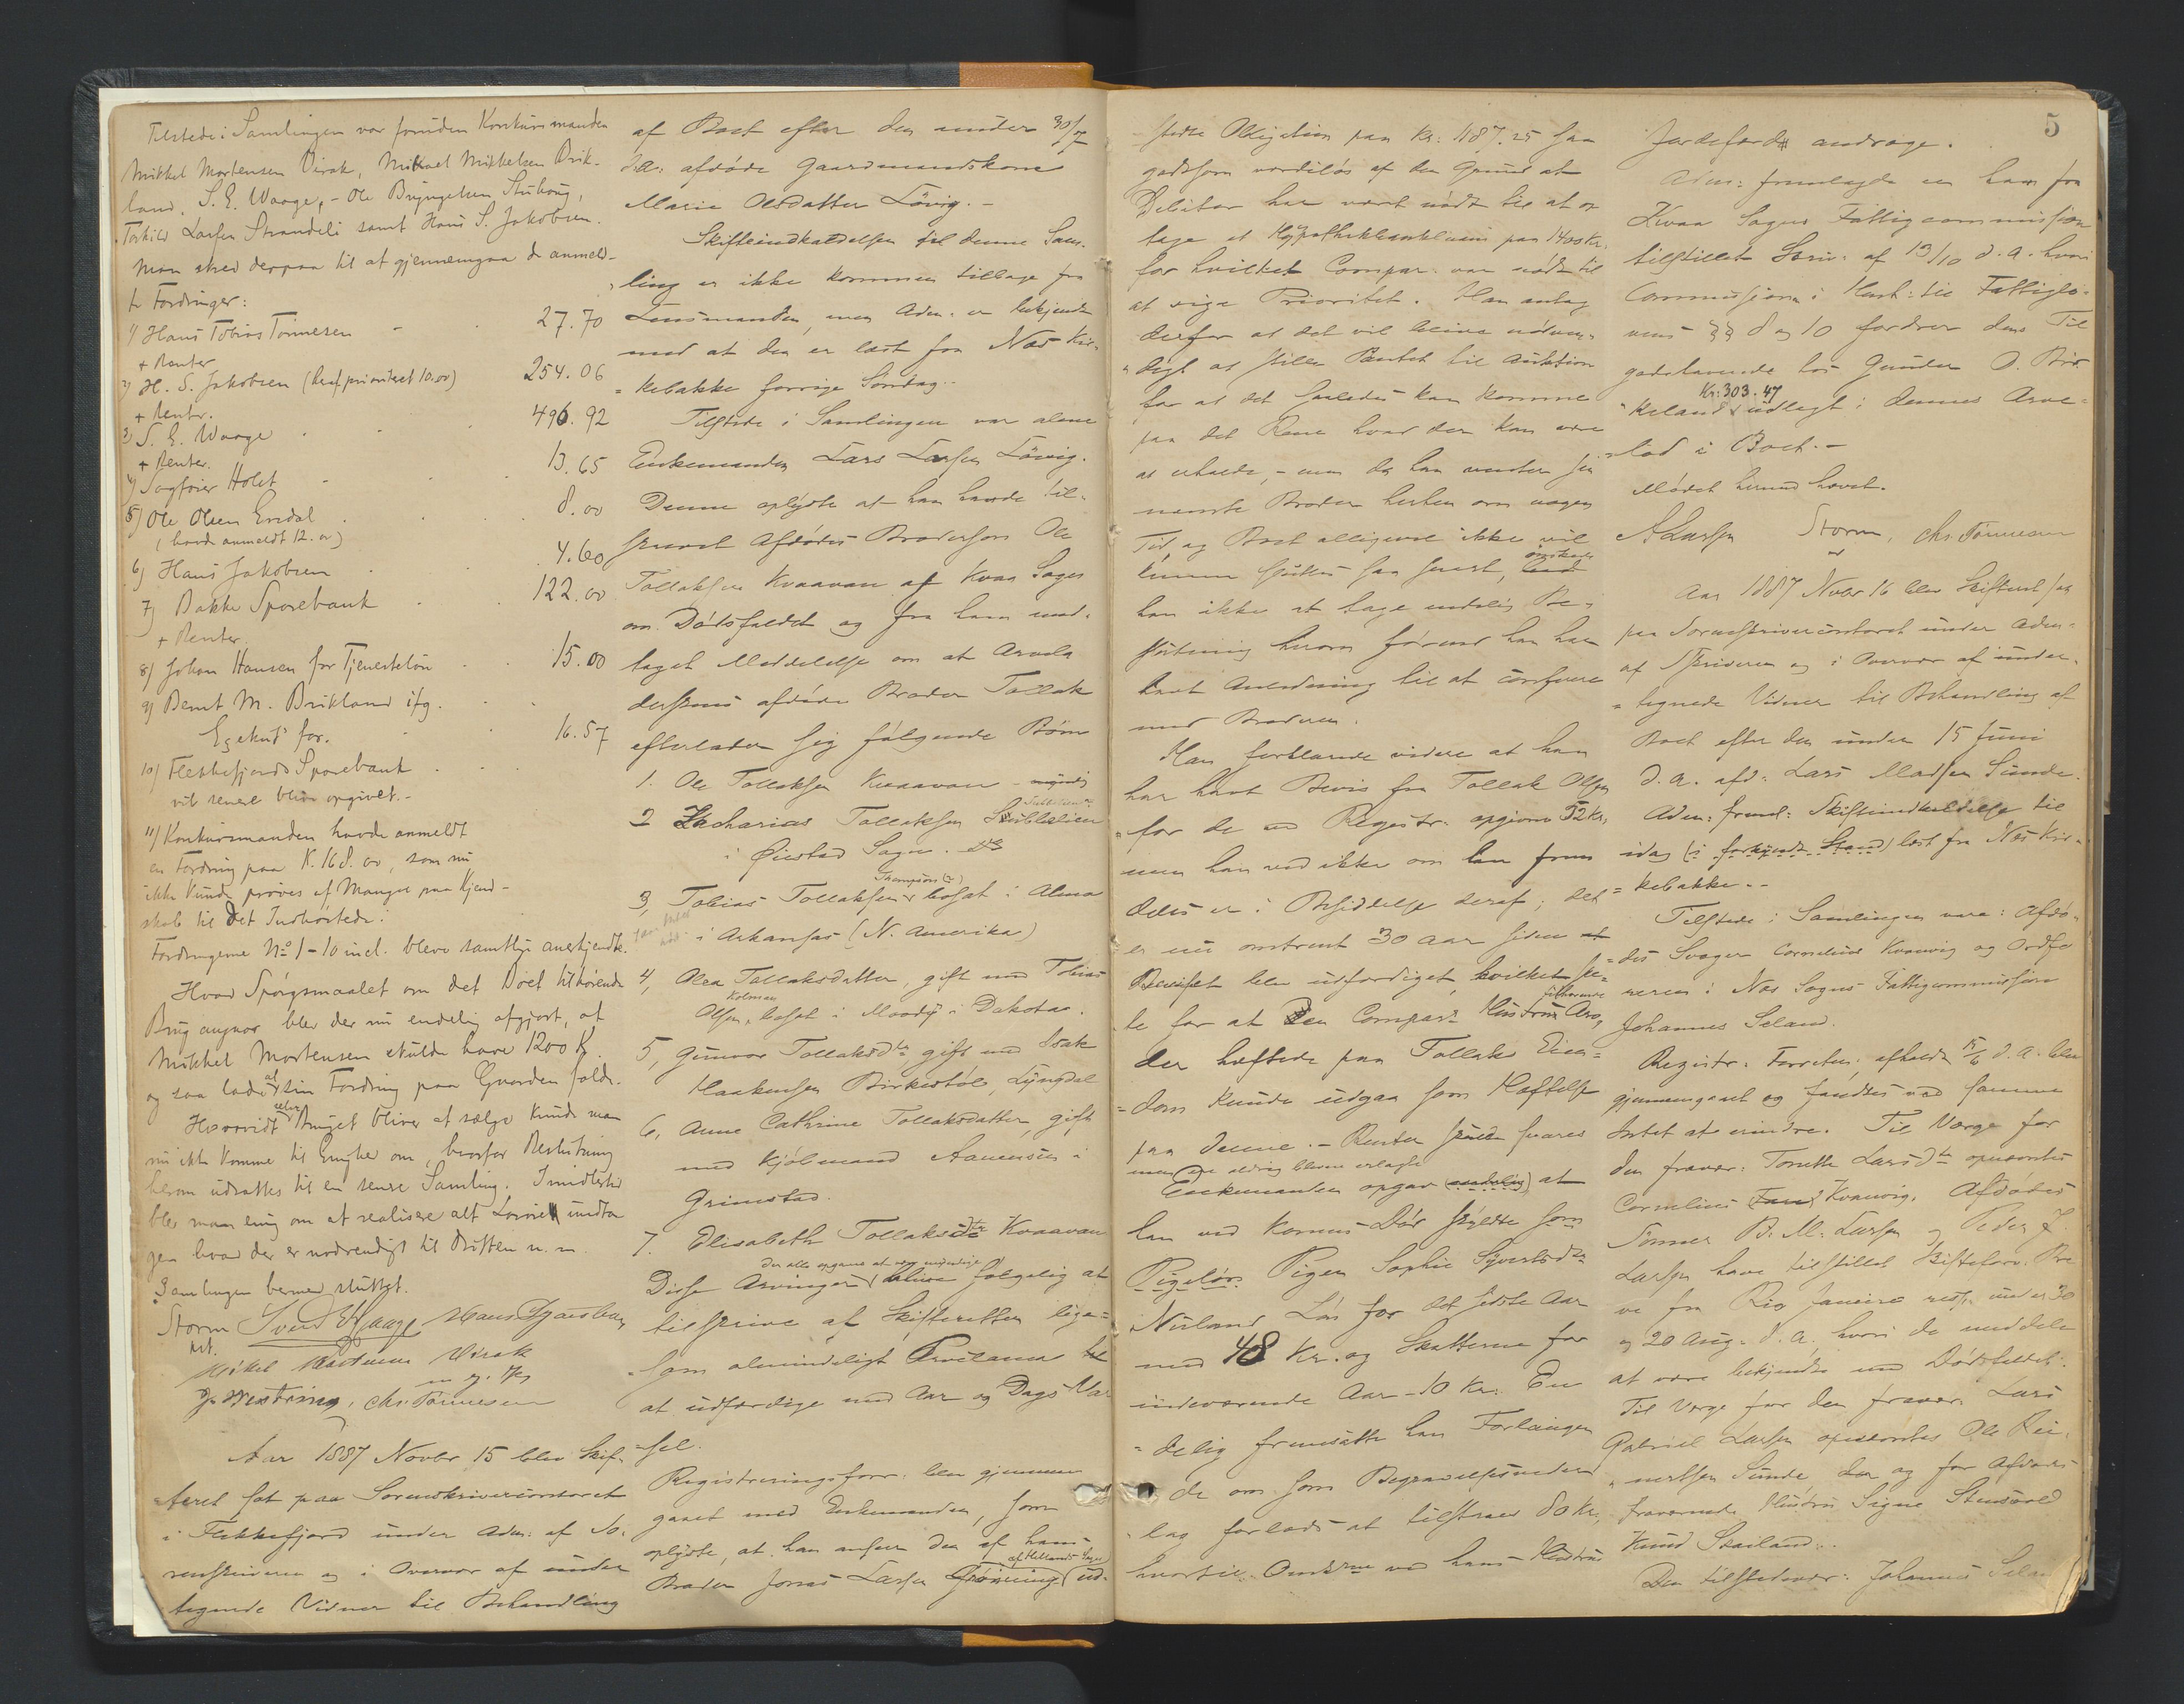 Tilstede i Samlingen var foruden Konkursmanden
Mikkel Mortensen Virak, Mikael Mikkelsen Brik-
land, S. E. Waage, - Ole Bryngelsen Stuhaug,
Torkild Larsen Strandeli samt Hans S. Jakobsen.
Man skred derpaa til at gjennemgaa de anmeld-
te Fordringer:
1) Hans Tobias Tönnesen - 27.70
+ Renter
2) H. S. Jakobsen (heraf prioriteret 10.00) 254.06
+ Renter.
3) S. E. Waage 496.92
+ Renter.
4) Sagförer Holst 13.65
5) Ole Olsen Eredal 8.00
(havde anmeldt 12.00)
6) Hans Jakobsen 4.60
7) Bakke Sparebank 122.00
+ Renter.
8) Johan Hansen for Tjenestelön 15.00
9) Bernt M. Brikland ifg.
Exekut. for. 16.57
10) Flekkefjords Sparebank
vil senere blive opgivet.-
11) Konkursmanden havde anmeldt
en Fordring paa K. 168.00, som nu
ikke kunde pröves af Mangel paa Kjend-
skab til det Indhöstede.
Fordringerne No 1-10 incl. bleve samtlige anerkjendte.
Hvad Spörgsmaalet om det Boet tilhörende
Brug angaar blev der nu endelig afgjort, at
Mikkel Mortensen skulde have 1200 K.
og saa lade al sin Fordring paa Gaarden falde.
Hvorvidt selve Bruget bliver at sælge kunde man
nu ikke komme til Enighed om, hvorfor Beslutning
herom udsattes til en senere Samling. Imidlertid
blev man enig om at realisere alt Lösöre undta-
gen hvad der er nödvendigt til Driften m. m.
Samlingen hermed sluttet.
Storm Sven E Waage Hans Sjacobsen
kst.
Mikel Mortensen Virak
m. p. P.
Chr. Tönnesen
Aar 1887 Novbr 15 blev Skif-
teret sat paa Sorenskrivercontoret
i Flekkefjord under Adm: af So-
renskriveren og i Overvær af under
tegnede Vidner til Behandling
af Boet efter den under 30/7
d.a. afdöde Gaardmandskone
Marie Olsdatter Lövig.-
Skifteindkaldelsen til denne Sam-
ling er ikke kommen tilbage fra
Lensmanden, men Adm. er bekjendt
med at den er læst fra Nes Kir-
kebakke forrige Söndag.-
Tilstede i Samlingen var alene
Enkemanden Lars Larsen Lövig.
Denne oplyste at han havde til-
skrevet Afdödes Brodersön Ole
Tollaksen Kvaavan af Kvaa Sogn
om Dödsfaldet og fra ham mod-
taget Meddelelse om at Arvela
derskens afdöde Broder Tollak
efterlader sig fölgende Börn
1. Ole Tollaksen Kvaavan - myndig
2 Zacharias Tollaksen
i Öiestad Sogn. do
3, Tobias Tollaksen Thompson (?) bosat i Alma
i Arkansas (N. Amerika)
4, Olea Tollaksdatter, gift med Tobias
Olsen Kolman, bosat i Moody i Dakota.
5, Gunvor Tollaksdtr gift med Isak
Haakensen Birkestöl, Lyngdal
6, Anne Cathrine Tollaksdatter, gift
med Kjöbmand Aanensen i
Grimstad.
7. Elisabeth Tollaksdtr Kvaavan
Disse Arvinger der alle opgaves at være myndige bleve fölgelig at
tilskrive af Skifteretten lige-
som almindeligt Proclama
at udfærdige med Aar og Dags Var
sel.
Registreringsforr: blev gjennem
gaaet med Enkemanden, som
oplyste, at han anser den af hans
Broder Jonas Larsen Grönning af Hitterands Sogn ud-
stedte Obligation paa Kr: 1187.25 saa
godtsom værdilös af den Grund at
Debitor har været nödt til at op
tage et Hypothekbanklaan paa 1400 Kr.
for hvilket Compar: var nödt til
at vige Prioritet. Han antog
derfor at det vil blive nödven-
digt at stille Pantet til Auktion
for at det saaledes kan komme
paa det Rene hvad der kan være
at erholde, - men da han venter sin
nævnte Broder herhen om nogen
Tid, og Boet alligevel ikke vil
kunne sluttes saa snart, önskede
han ikke at tage endelig Be-
slutning herom förend han har
havt Anledning til at conferere
med Broderen.
Han forklarede videre at han
har havt Bevis fra Tollak Olsen
for de ved Registr. opgivne 52 Kr,
men han ved ikke om han frem
deles er i Besiddelse deraf; det
er nu omtrent 30 Aar siden
Beviset blev udfærdiget, hvilket ske-
te for at den Compar: Hustru tilkommende Arv,
der heftede paa Tollaks Eien-
dom kunde udgaa som Heftelse
paa denne. - Renter skulde svares
men ere aldrig blevne erlagte
Enkemanden opgav at
han ved Konens Död skyldte som
Pigelön Pigen Sophie Syvertsdtr
Nuland Lön for det sidste Aar
med 48 Kr. og Skatterne for
indeværende Aar - 10 Kr. En
delig fremsatte han Forlangen
de om som Begravelsesveder
lag forlods at tilstaaes 80 Kr.,
hvortil Omk:ne ved hans Hustrus
Jordefærd androge.
Adm: fremlagde en ham fra
Kvaa Sogns Fattigcommission
tilstillet Skriv: af 13/10 d.a. hvori
Commissionen i Henh: til Fattiglo-
vens §§ 8 og 10 fordrer dens Til
godehavende hos Gunder O. Bir-
keland Kr: 303.47 udlagt i dennes Arve-
lod i Boet.-
Mödet hermed hævet.
Storm, Chr. Tönnesen
Aar 1887 Novbr 16 blev Skifteret sat
paa Sorenskrivercontoret under Adm:
af Skriveren og i Overvær af under-
tegnede Vidner til Behandling af
Boet efter den under 15 Juni
d.a. afd: Lars Madsen Sunde.
Adm: freml: Skifteindkaldelse til
idag (i forkyndt Stand) læst fra Nes Kir-
kebakke.-
Tilstede i Samlingen vare: Afdö-
des Svoger Cornelius Kvanvig og Ordfö
reren i Nes Sogns Fattigcommission
Johannes Seland.
Registr: Forretn:, afholdt 15/6 d.a. blev
gjennemgaaet og fandtes ved samme
Intet at erindre. Til Værge for
den fravær: Tonette Larsdtr opnævntes
Cornelius Kvanvig. Afdödes
Sönner B. M. Larsen og Peder J.
Larsen have tilstillet Skifteforv: Bre
ve fra Rio Janeiro resp. under 30
og 20 Aug. d.a., hvori de meddele
at være bekjendte med Dödsfaldet.
Til Værge for den fravær: Lars
Gabriel Larsen opnævntes Ole Rei-
nertsen Sunde, der og for Afdödes
fraværende Hustru Signe
Knud
Den tilstedevær: Johannes Selan
5